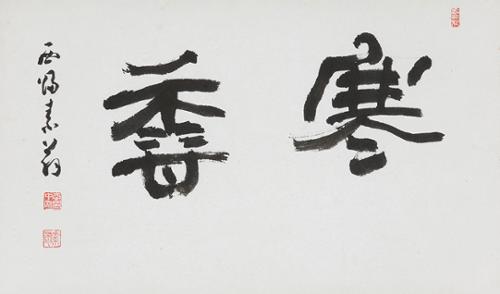 寒香
西歸素翁